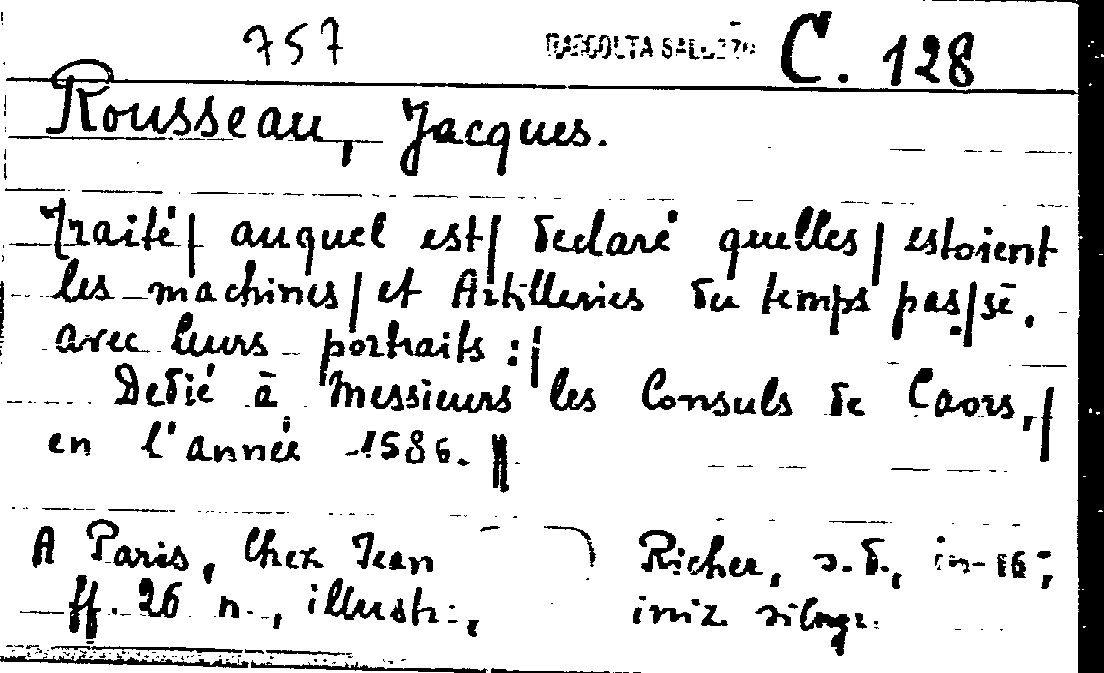 757 RACCOLTA C. 128
Rousseau, Jacques.
Traité | auquel est | declaré quelles | estoient
les machines | et Artilleries du temps pas|sé,
avec leurs portraits : |
Dedié à Messieurs les Consuls de Caors, |
en l'année 1586. ||
A Paris, Chez Jean Richer, s.d., in-16°;
ff. 26 n., illustr., iniz. silogr.